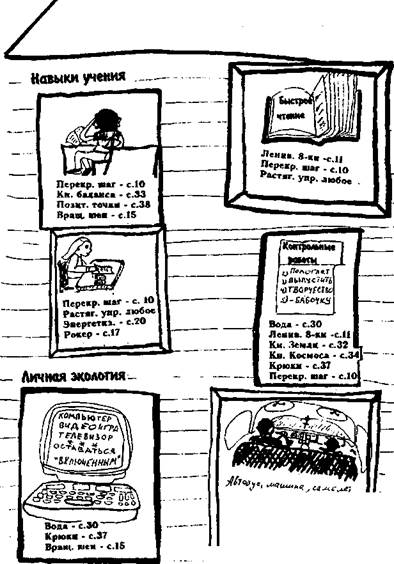 Навыки учения
Перекр. шаг - с.10
Кн. баланса - с.33
Позит. точки - с.38
Вращ. шеи - с.15
Быстрое
чтение
Ленив. 8-ки -с.11
Перекр. шаг - с.10
Растяг. упр. любое
Перекр. шаг - с. 10
Растяг. упр. любое
Энергетиз. - с.20
Рокер - с.17
Контрольные
работы
1) Помогает
выпустить
творчество
- бабочку
Вода - с.30
Ленив. 8-ки -с.11
Кн. Земли - с.32
Кн. Космоса - с.34
Крюки - с.37
Перекр. шаг - с.10
Личная экология
КОМПЬЮТЕР
ВИДЕОИГРА
ТЕЛЕВИЗОР
ОСТАВАТЬСЯ
"ВКЛЮЧЕННЫМ"
Вода - с.30
Крюки - с.37
Вращ. шеи - с.15
Автобус, машина, самолет